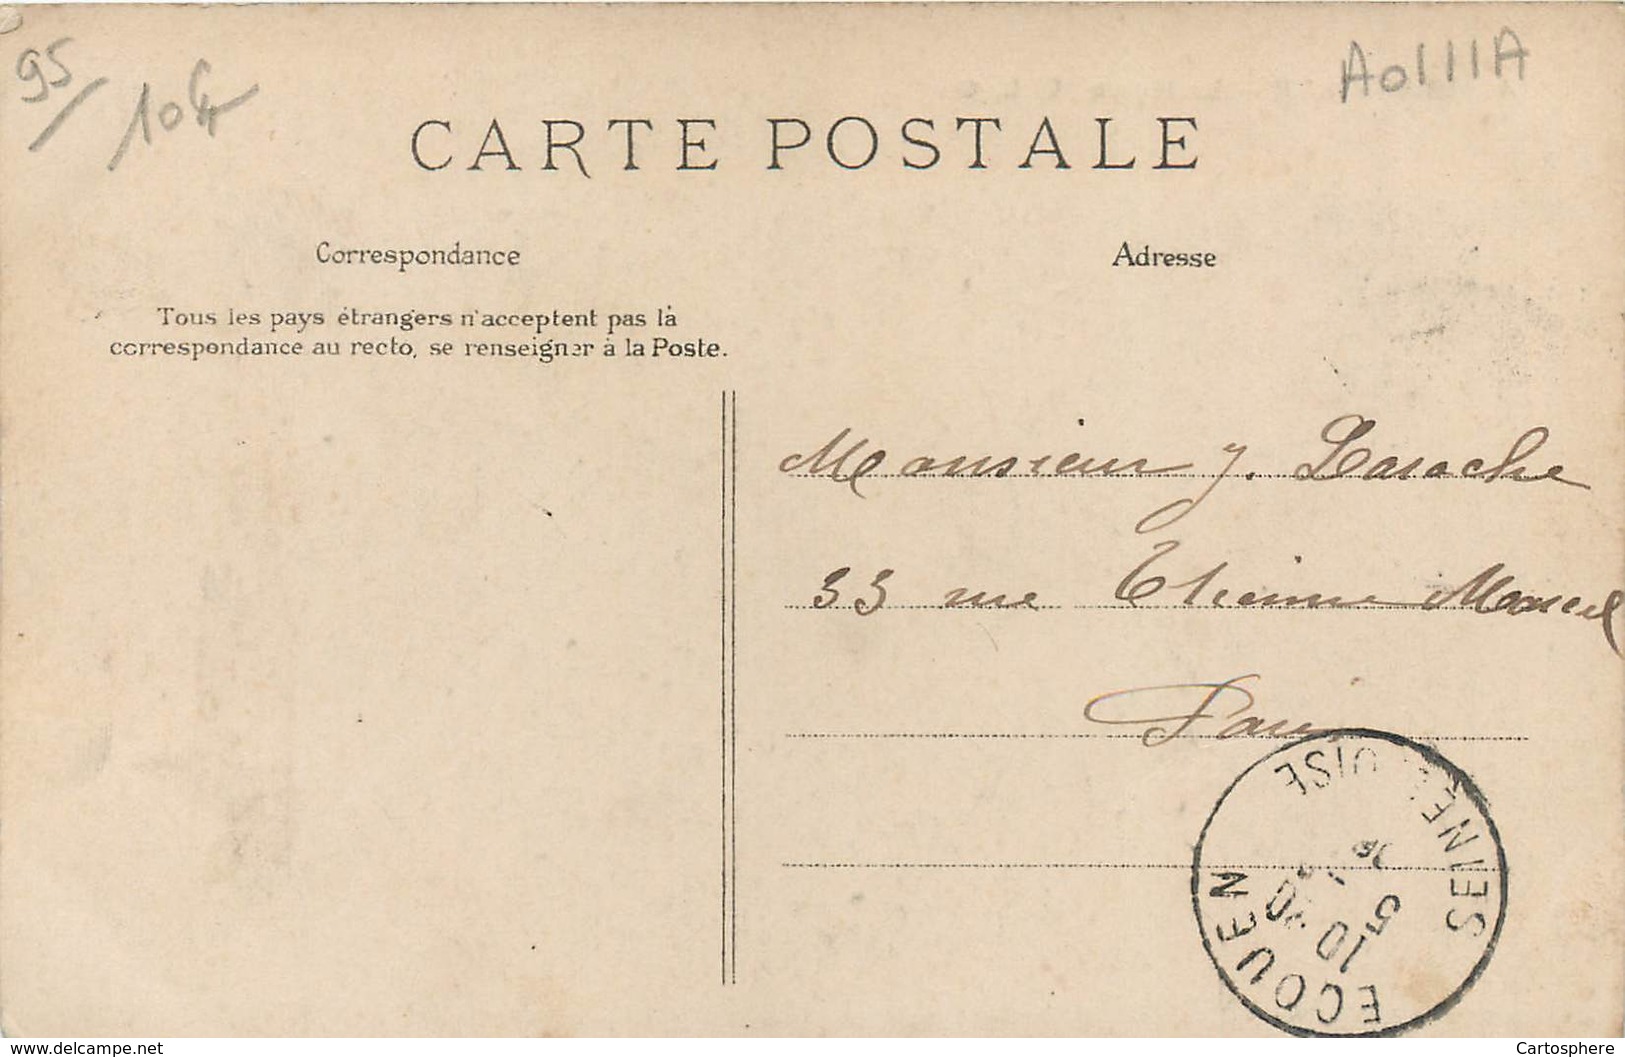 95/
10€
A0111A
CARTE POSTALE
Correspondance
Adresse
Tous les pays étrangers n'acceptent pas la
correspondance au recto, se renseigner à la Poste.
Monsieur J. Laroche
33 rue Etienne Marcel
Paris
ECOUEN
SEINE ET OISE
5
10
www.delcampe.net
Cartosphere